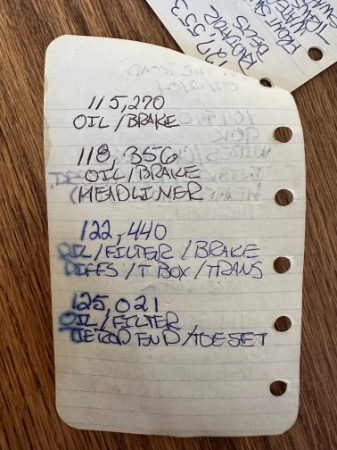 115,270
OIL/BRAKE
118,356
OIL/BRAKE
(HEADLINER
122,440
OIL/FILTER/BRAKE
DIFFS/T BOX/TRANS
125,021
OIL/FILTER
TIE ROD END/TOE SET
127,553
RADIATOR
FRONT